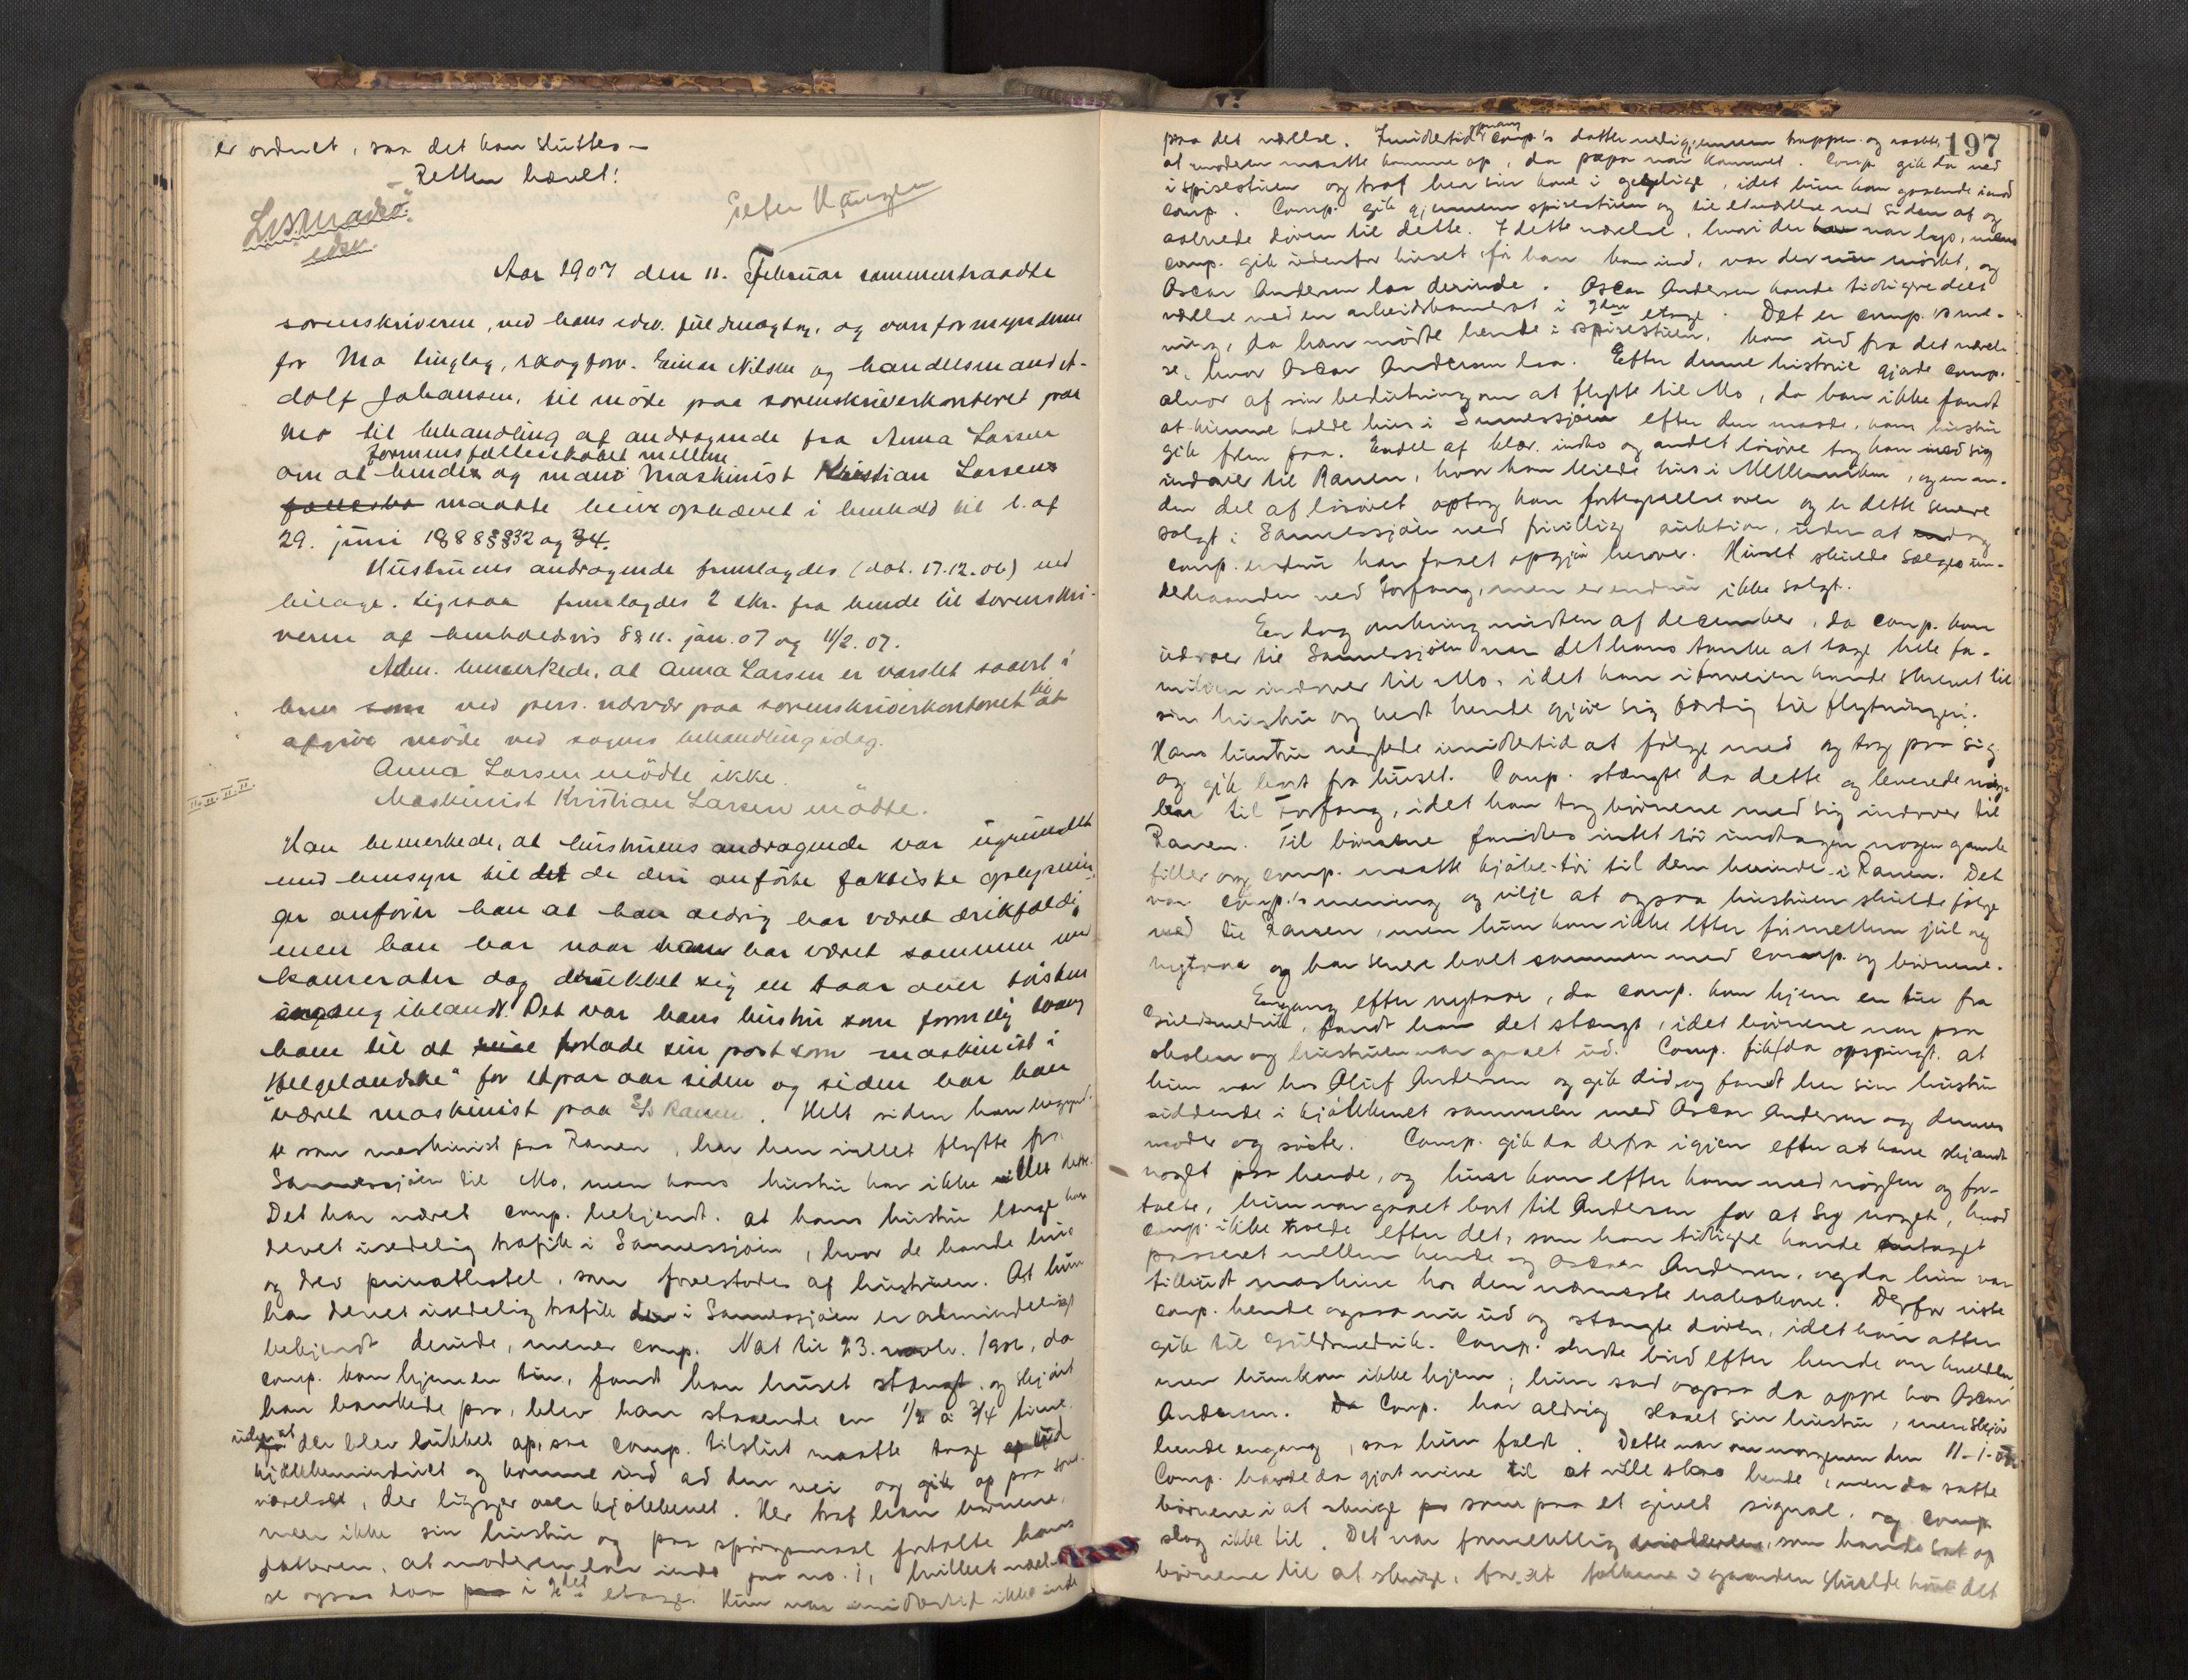 er ordnet, saa det kan sluttes –
Retten hævet!
Aar 1907 den 11. Februar sammentraadte
sorenskriveren, ved hans edsv. fuldmægtig, og overformynderne
for Mo tinglag, skogforv. Einar Nilsen og handelsmand A-
dolf Johansen, til møde paa sorenskriverkontoret paa
Mo til behandling af andragende fra Anna Larsen
formuesfællesskabet mellem
om at hendes og mand Maskinist Kristian Larsens
maatte blive ophævet i henhold til l. af
29. juni 1888 §§ 32 og 34.
Hustruens andragende fremlagdes (dat. 17.12.06) med
bilage. Ligesaa fremlagdes 2 skr. fra hende til sorenskri-
veren af henholdsvis 11. jan. 07 og 11/2. 07.
Adm. bemerkede, at Anna Larsen er varslet saavel i
brev som ved pers. nærvær paa sorenskriverkontoret til at
afgive møde ved sagens behandling idag.
Anna Larsen mødte ikke.
Maskinist Kristian Larsen mødte.
Han bemerkede, at hustruens andragende var ugrundet
med hensyn til det de deri anførte faktiske oplysnin-
ger anfører han at han aldrig har været drikfældig
men han har naar han har været sammen med
kamerater dog drukket sig en taar over tørsten
engang iblandt. Det var hans hustru som formelig tvang
ham til at forlade sin post som maskinist i
"Helgelandske" for et par aar siden og siden har han
været maskinist paa S/S Ranen. Helt siden han begynd-
te som maskinist paa Ranen, har han villet flytte fra
Sannessjøen til Mo, men hans hustru har ikke villet dette.
Det har været comp. bekjendt, at hans hustru længe har
drevet usedelig trafik i Sannessjøen, hvor de havde hus
og drev privathotel, som forestodes af hustruen. At hun
har drevet usedelig trafik i Sannessjøen er almindeligt
bekjendt derude, mener comp. Nat til 23. novbr. 1906, da
comp. kom hjem en tur, fandt han huset stængt, og skjønt
han bankede paa, blev han staaende en 1/2 à 3/4 time
uden at der blev lukket op, saa comp. tilslut maatte tage ud
kjøkkenvinduet og komme ind ad den vei og gik op paa sove-
værelset, der ligger over kjøkkenet. Her traf han børnene,
men ikke sin hustru og paa spørgsmaal fortalte hans
datteren, at moderen var inde paa no. 1, hvilket værel-
se ogsaa laa i 2det etage. Hun var imidlertid ikke inde
197
paa det værelse. Imidlertid sprang comp's datter ned igjennem trappen og raabte,
at moderen maatte komme op, da papa var kommet. Comp. gik da ned
i spisestuen og traf her sin kone i, idet hun kom gaaende imod
comp. Comp. gik gjennem spisestuen og til et værelse ved siden af og
aabnede døren til dette. I dette værelse, hvori der var lys, mens
comp. gik udenfor huset før han kom ind, var der nu mørkt, og
Oscar Andersen laa derinde. Oscar Andersen havde tidligere delt
værelse med en arbeidskamerat i 2den etage. Det er comp.'s me-
ning, da han mødte hende i spisestuen, kom ud fra det værel-
se, hvor Oscar Andersen laa. Efter denne historie gjorde comp.
alvor af sin beslutning om at flytte til Mo, da han ikke fandt
at kunne holde hus i Sannessjøen efter den maade, hans hustru
gik frem paa. Endel af klær, indbo og andet løsøre tog han med sig
indover til Ranen, hvor han leiede hus i Mellemviken, og en an-
den del af løsøret optog han fortegnelse over og er dette senere
solgt i Sannessjøen ved frivillig auktion, uden at
comp. endnu har faaet opgjør herover. Huset skulde sælges un-
derhaanden ved Forfang, men er endnu ikke solgt.
En dag omkring midten af december, da comp. kom
udover til Sannessjøen var det hans tanke at tage hele fa-
milien indover til Mo, idet han iforveien havde skrevet til
sin hustru og bedt hende gjøre sig færdig til flytningen.
Hans hustru negtede imidlertid at følge med og tog paa sig
og gik bort fra huset. Comp. stængte da dette og leverede nøg-
len til Forfang, idet han tog børnene med sig indover til
Ranen. Til børnene fandtes intet tøi undtagen nogen gamle
filler og comp. maatte kjøbe tøi til dem herinde i Ranen. Det
var comp.'s mening og vilje at ogsaa hustruen skulde følge
med til Ranen, men hun kom ikke efter før mellem jul og
nytaar og har senere bolt sammen med comp. og børnene.
Engang efter nytaar, da comp. kom hjem en tur fra
Guldsmedvik, fandt han det stængt, idet børnene var paa
skolen og hustruen var gaaet ud. Comp. fik da opspurgt, at
hun var hos Oluf Andersen og gik did og fandt her sin hustru
siddende i kjøkkenet sammen med Oscar Andersen og dennes
moder og søster. Comp. gik da derfra igjen efter at have skjændt
noget paa hende, og hun kom efter ham med nøglen og for-
talte, hun var gaaet bort til Andersen for at sy noget, hvad
comp. ikke troede efter det, som han tidligere havde
passeret mellem hende og Oscar Andersen, og da hun var
tilbudt maskine hos den nærmeste nabokone. Derfor viste
comp. hende ogsaa nu ud og stængte døren, idet han atter
gik til Guldsmedvik. Comp. sendte bud efter hende om kvelden,
men hun kom ikke hjem; hun sad ogsaa da oppe hos Oscar
Andersen. Comp. har aldrig slaaet sin hustru, men skjøv
hende engang, saa hun faldt. Dette var om morgenen den 11-1-07.
Comp. havde da gjort mine til at ville slaa hende, men da satte
børnene i at skrige som paa et givet signal, og comp.
slog ikke til. Det var formentlig moderen, som havde sat op
børnene til at skrige, for at folkene i gaarden skulde høre det